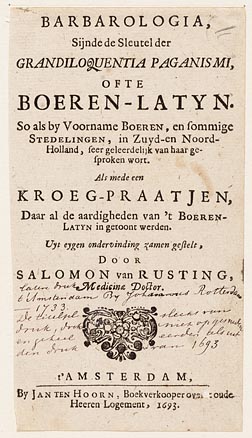 BARBAROLOGIA,
Sijnde de Sleutel der
GRANDILOQUENTIA PAGANISMI,
OFTE
BOEREN-LATYN.
So als by Voorname BOEREN, en sommige
STEDELINGEN, in Zuyd-en Noord-
Holland, seer geleerdelijk van haar ge-
sproken wort.
Als mede een
KROEG-PRAATJEN,
Daar al de aardigheden van 't BOEREN-
LATYN in getoont werden.
Uyt eygen ondervinding zamen gestelt,
DOOR
SALOMON van RUSTING,
Medicinæ Doctor.
laten druk
t Amsterdam By Johannes Rotterdam
1733
De tijtel
druk, druk
en geheel
den druk van 1693
t'AMSTERDAM,
By JAN TEN HOORN, Boekverkooper over oude
Heeren Logement, 1693.